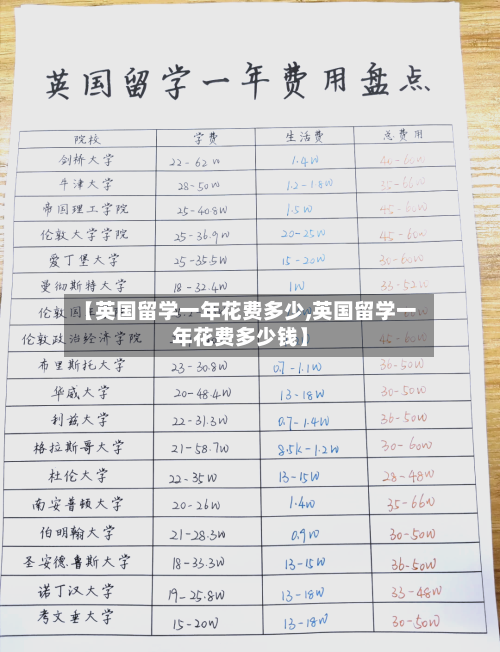 英国留学一年费用盘点
院校 学费 生活费 总费用
剑桥大学 22-62w 1.4w 40-60w
牛津大学 28-50w 1.2-1.8w 35-66w
帝国理工学院 25-40.8w 1.5w 45-60w
伦敦大学学院 25-36.9w 20-25w 45-60w
爱丁堡大学 25-35.5w 15-20w 30-60w
曼彻斯特大学 18-32.4w 1w 33-52w
伦敦国王
【英国留学一年花费多少,英国留学一
年花费多少钱】
伦敦政治经济学院 45-60w
布里斯托大学 23-30.8w 0.7-1.1w 36-50w
华威大学 20-48.4w 13-18w 30-50w
利兹大学 22-31.3w 0.7-1.4w 36-50w
格拉斯哥大学 21-58.7w 8.5k-1.2w 30-60w
杜伦大学 22-35w 13-15w 28-48w
南安普顿大学 20-26w 1.4w 35-66w
伯明翰大学 21-28.3w 0.9w 30-50w
圣安德鲁斯大学 18-33.3w 13-15w 36-50w
诺丁汉大学 19-25.8w 13-18w 33-48w
考文垂大学 15-20w 13-18w 30-50w